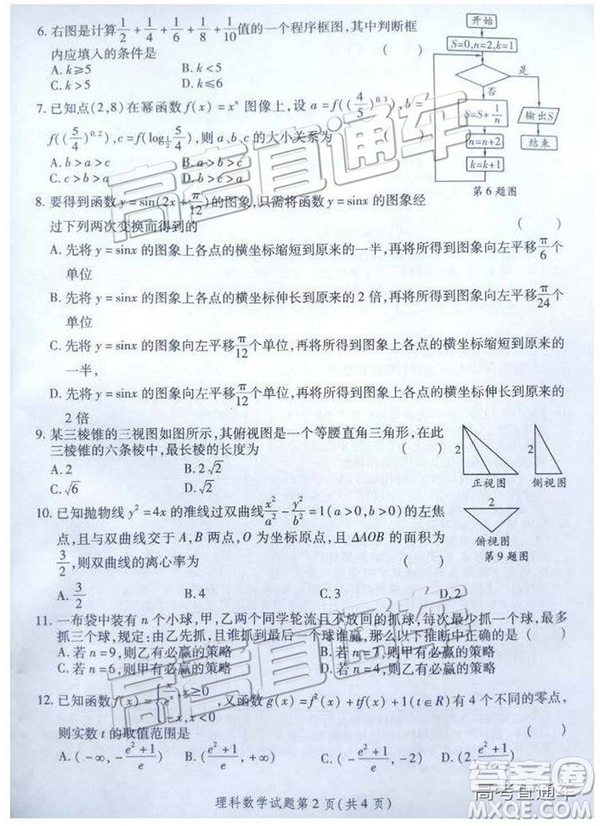 6. 右图是计算1/2+1/4+1/6+1/8+1/10值的一个程序框图,其中判断框
内应填入的条件是 ( )
A. k≥5 B. k>5
C. k<5 D. k≤6
开始
S=0,n=2,k=1
是
否
S=S+1/n
n=n+2
k=k+1
输出S
结束
第6题图
7. 已知点(2,8)在幂函数f(x)=xⁿ 图像上,设a=f((4/5)^0.3),b=
f((5/4)^0.2),c=f(log½ 5/4),则a、b、c的大小关系为 ( )
A. b>a>c
C. c>b>a
8. 要得到函数y=sin(2x+π/12)的图象,只需将函数y=sinx的图象经
过下列两次变换而得到的 ( )
A. 先将y=sinx的图象上各点的横坐标缩短到原来的一半,再将所得到图象向左平移π/6个
单位
B. 先将y=sinx的图象上各点的横坐标伸长到原来的2倍,再将所得到图象向左平移π/24个
单位
C. 先将y=sinx的图象向左平移π/12个单位,再将所得到图象上各点的横坐标缩短到原来的
一半,
D. 先将y=sinx的图象向左平移π/12个单位,再将所得到图象上各点的横坐标伸长到原来的
2倍
9. 某三棱锥的三视图如图所示,其俯视图是一个等腰直角三角形,在此
三棱锥的六条棱中,最长棱的长度为 ( )
A. 2 B. 2√2
C. √6 D. 2√3
2
2
2
正视图 侧视图
俯视图
第9题图
10. 已知抛物线y²=4x的准线过双曲线x²/a²-y²/b²=1(a>0,b>0)的左焦
点,且与双曲线交于A,B两点,O为坐标原点,且ΔAOB的面积为
3/2,则双曲线的离心率为 ( )
A. 3/2 B. 4 C. 3 D. 2
11. 一布袋中装有n个小球,甲,乙两个同学轮流且不放回的抓球,每次最少抓一个球,最多
抓三个球,规定:由乙先抓,且谁抓到最后一个球谁赢,那么以下推断中正确的是 ( )
A. 若n=9,则乙有必赢的策略 B. 若n=7,则甲有必赢的策略
C. 若n=6,则甲有必赢的策略 D. 若n=4,则乙有必赢的策略
12. 已知函数f(x)= ,又函数g(x)=f²(x)+tf(x)+1(t∈R)有4个不同的零点,
则实数t的取值范围是 ( )
A. (-∞,-(e²+1)/e) B. ((e²+1)/e,+∞) C. (-(e²+1)/e,-2) D. (2,(e²+1)/e)
理科数学试题第2页(共4页)
高考直通车
高考直通车
高考直通车
答案圈
MXQE.COM